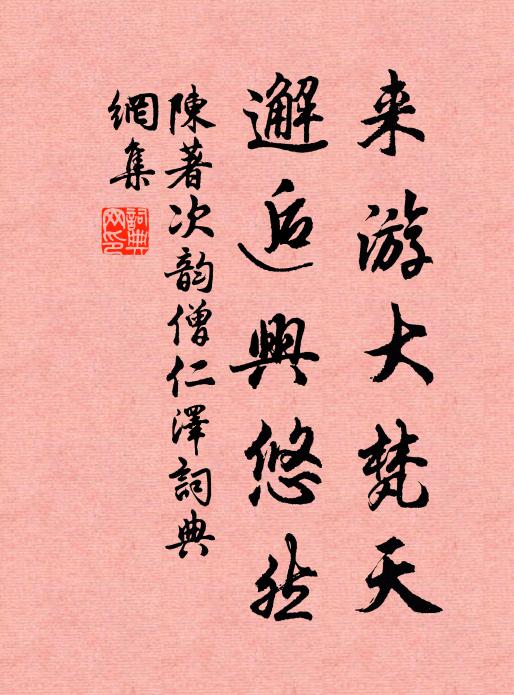 来游大梵天
邂逅興悠然
陳著次韵僧仁澤詞典
網集
詞典
网印